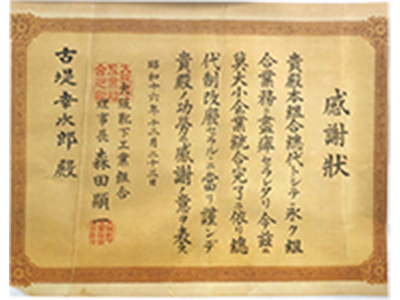 感謝狀
貴殿本組合總代トシテ永ク組
合業務ニ盡瘁セラレタリ今茲ニ
莫大小企業統合完了ニ依リ總
代制改廢セラルルニ當リ謹ンデ
貴殿ノ功勞ヲ感謝ノ意ヲ表ス
昭和十六年十二月二十三日
大阪靴下工業組合
理事長 森田顯一
古堤幸次郎殿